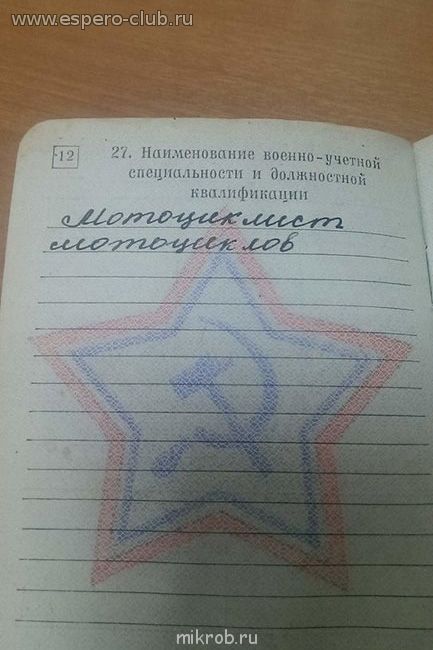 www.espero-club.ru
12
27. Наименование военно-учетной
специальности и должностной
квалификации
Мотоциклист
мотоциклов
mikrob.ru